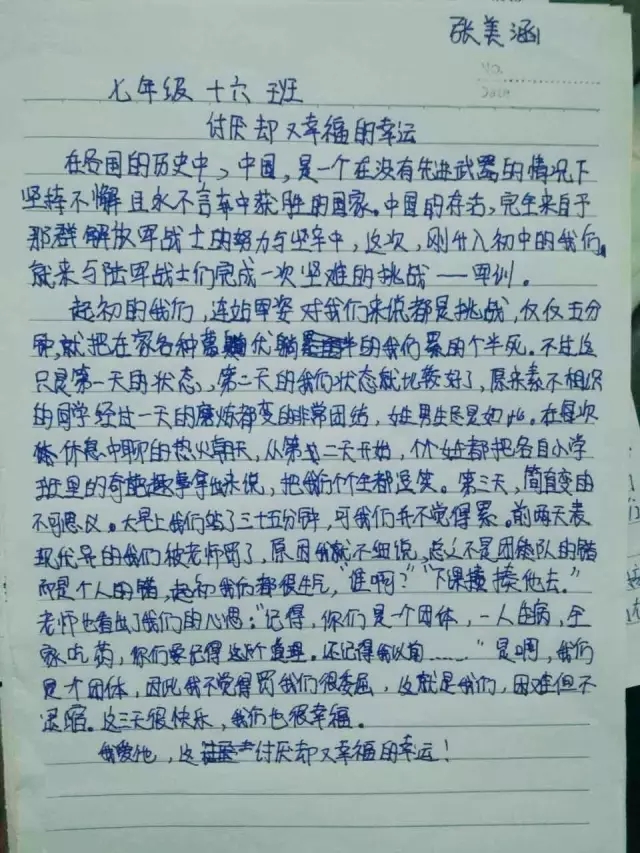 张美涵
No.
Date
七年级 十六 班
讨厌却又幸福的幸运
在各国的历史中,中国,是一个在没有先进武器的情况下
坚持不懈且永不言弃中获胜的国家。中国的存活,完全来自于
那群解放军战士的努力与坚辛中,这次,刚升入初中的我们,
就来与陆军战士们完成一次坚难的挑战——军训。
起初的我们,连站军姿对我们来说都是挑战,仅仅五分
钟,就把在家各种 优躺 的我们累的个半死。不过这
只是第一天的状态、第二天的我们状态就比较好了,原来素不相识
的同学经过一天的磨炼都变的非常团结,女生男生尽是如此。在每次
休息中聊的热火朝天,从第二天开始,个个女生都把各自小学
班里的奇葩趣事拿出来说,把我们个个生都逗笑。第三天,简直变的
不可思议。大早上我们站了三十五分钟,可我们并不觉得累。前两天表
现优异的我们被老师罚了,原因我就不细说,总之不是团练队的错
而是个人的错,起初我们都很生气,“谁啊?”“下课揍他去。”
老师也看出了我们的心思:“记得,你们是一个团体,一人生病,全
家吃药,你们要记得这个道理。还记得我以前……”是啊,我们
是个团体,因此我不觉得罚我们很委屈,这就是我们,困难但不
退缩。这三天很快乐,我们也很幸福。
我爱他,这 讨厌却又幸福的幸运!